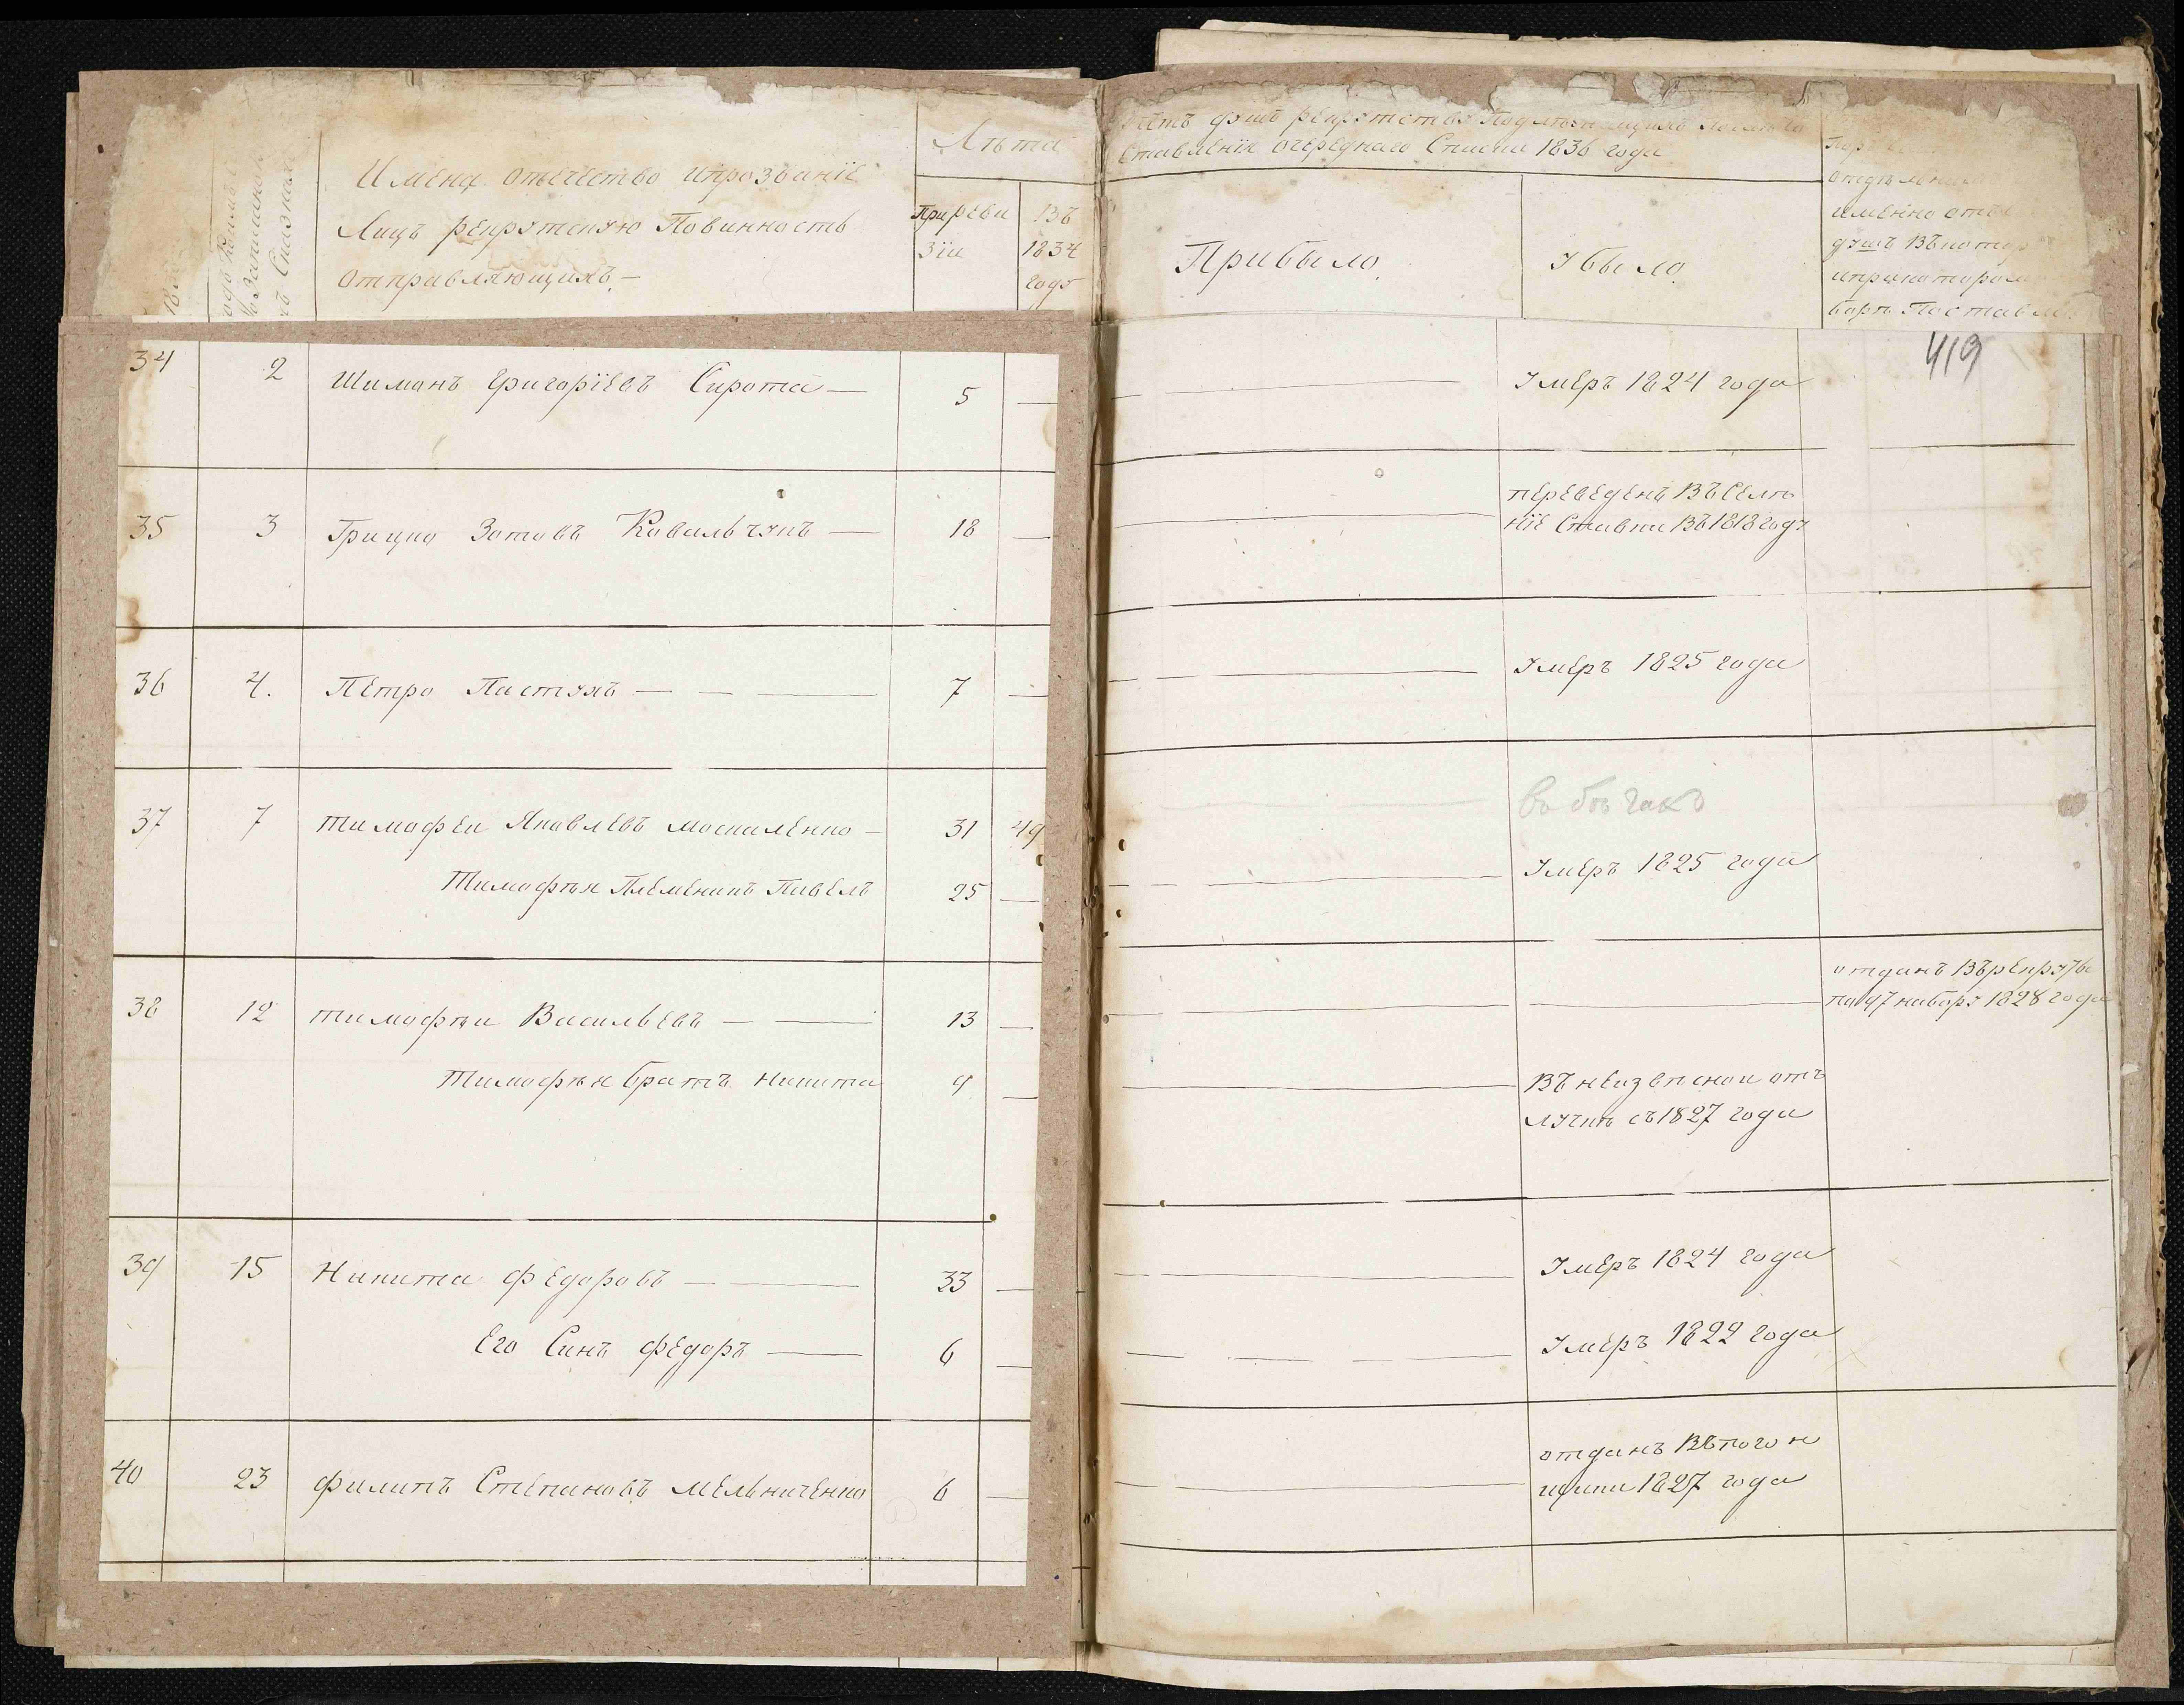 Имена отечество ипрозваніе
Лицъ рекрутскую Повинность
отправляющихъ. —
Лѣта
Приреви
зіи
Въ
1834
году
душъ рекрутства Подлежащихъ
ставленія очереднаго Списка 1836 года
Прибыло.
Убыло.
именно
душъ Въкотор
борѣ Поставле
419
34 2 Шиманъ Григоріевъ Сирота — 5 — Умеръ 1824 года
35 3 Грицко Зотовъ Ковальчукъ — 18 — переведенъ Въселѣ
ніе Ставки Въ1818году
36 4. Петро Пастухъ — 7 — Умеръ 1825 года
37 7 Тимофеи Яковлевъ москаленко — 31 49 въ бѣгахъ
Тимофѣя Племеникъ Павелъ 25 — Умеръ 1825 года
38 12 Тимофѣи Васильевъ — 13 — отданъ Върекруты
по97набору 1828 года
Тимофѣя братъ Никита 9 — Въ неизвѣсной отъ
лучкѣ съ1827 года
39 15 Никита Федоровъ — 33 — Умеръ 1824 года
Его Синъ Федоръ — 6 — Умеръ 1822 года
40 23 Филипъ Степановъ Мельниченко 6 — отданъ Въпогон
щики 1827 года